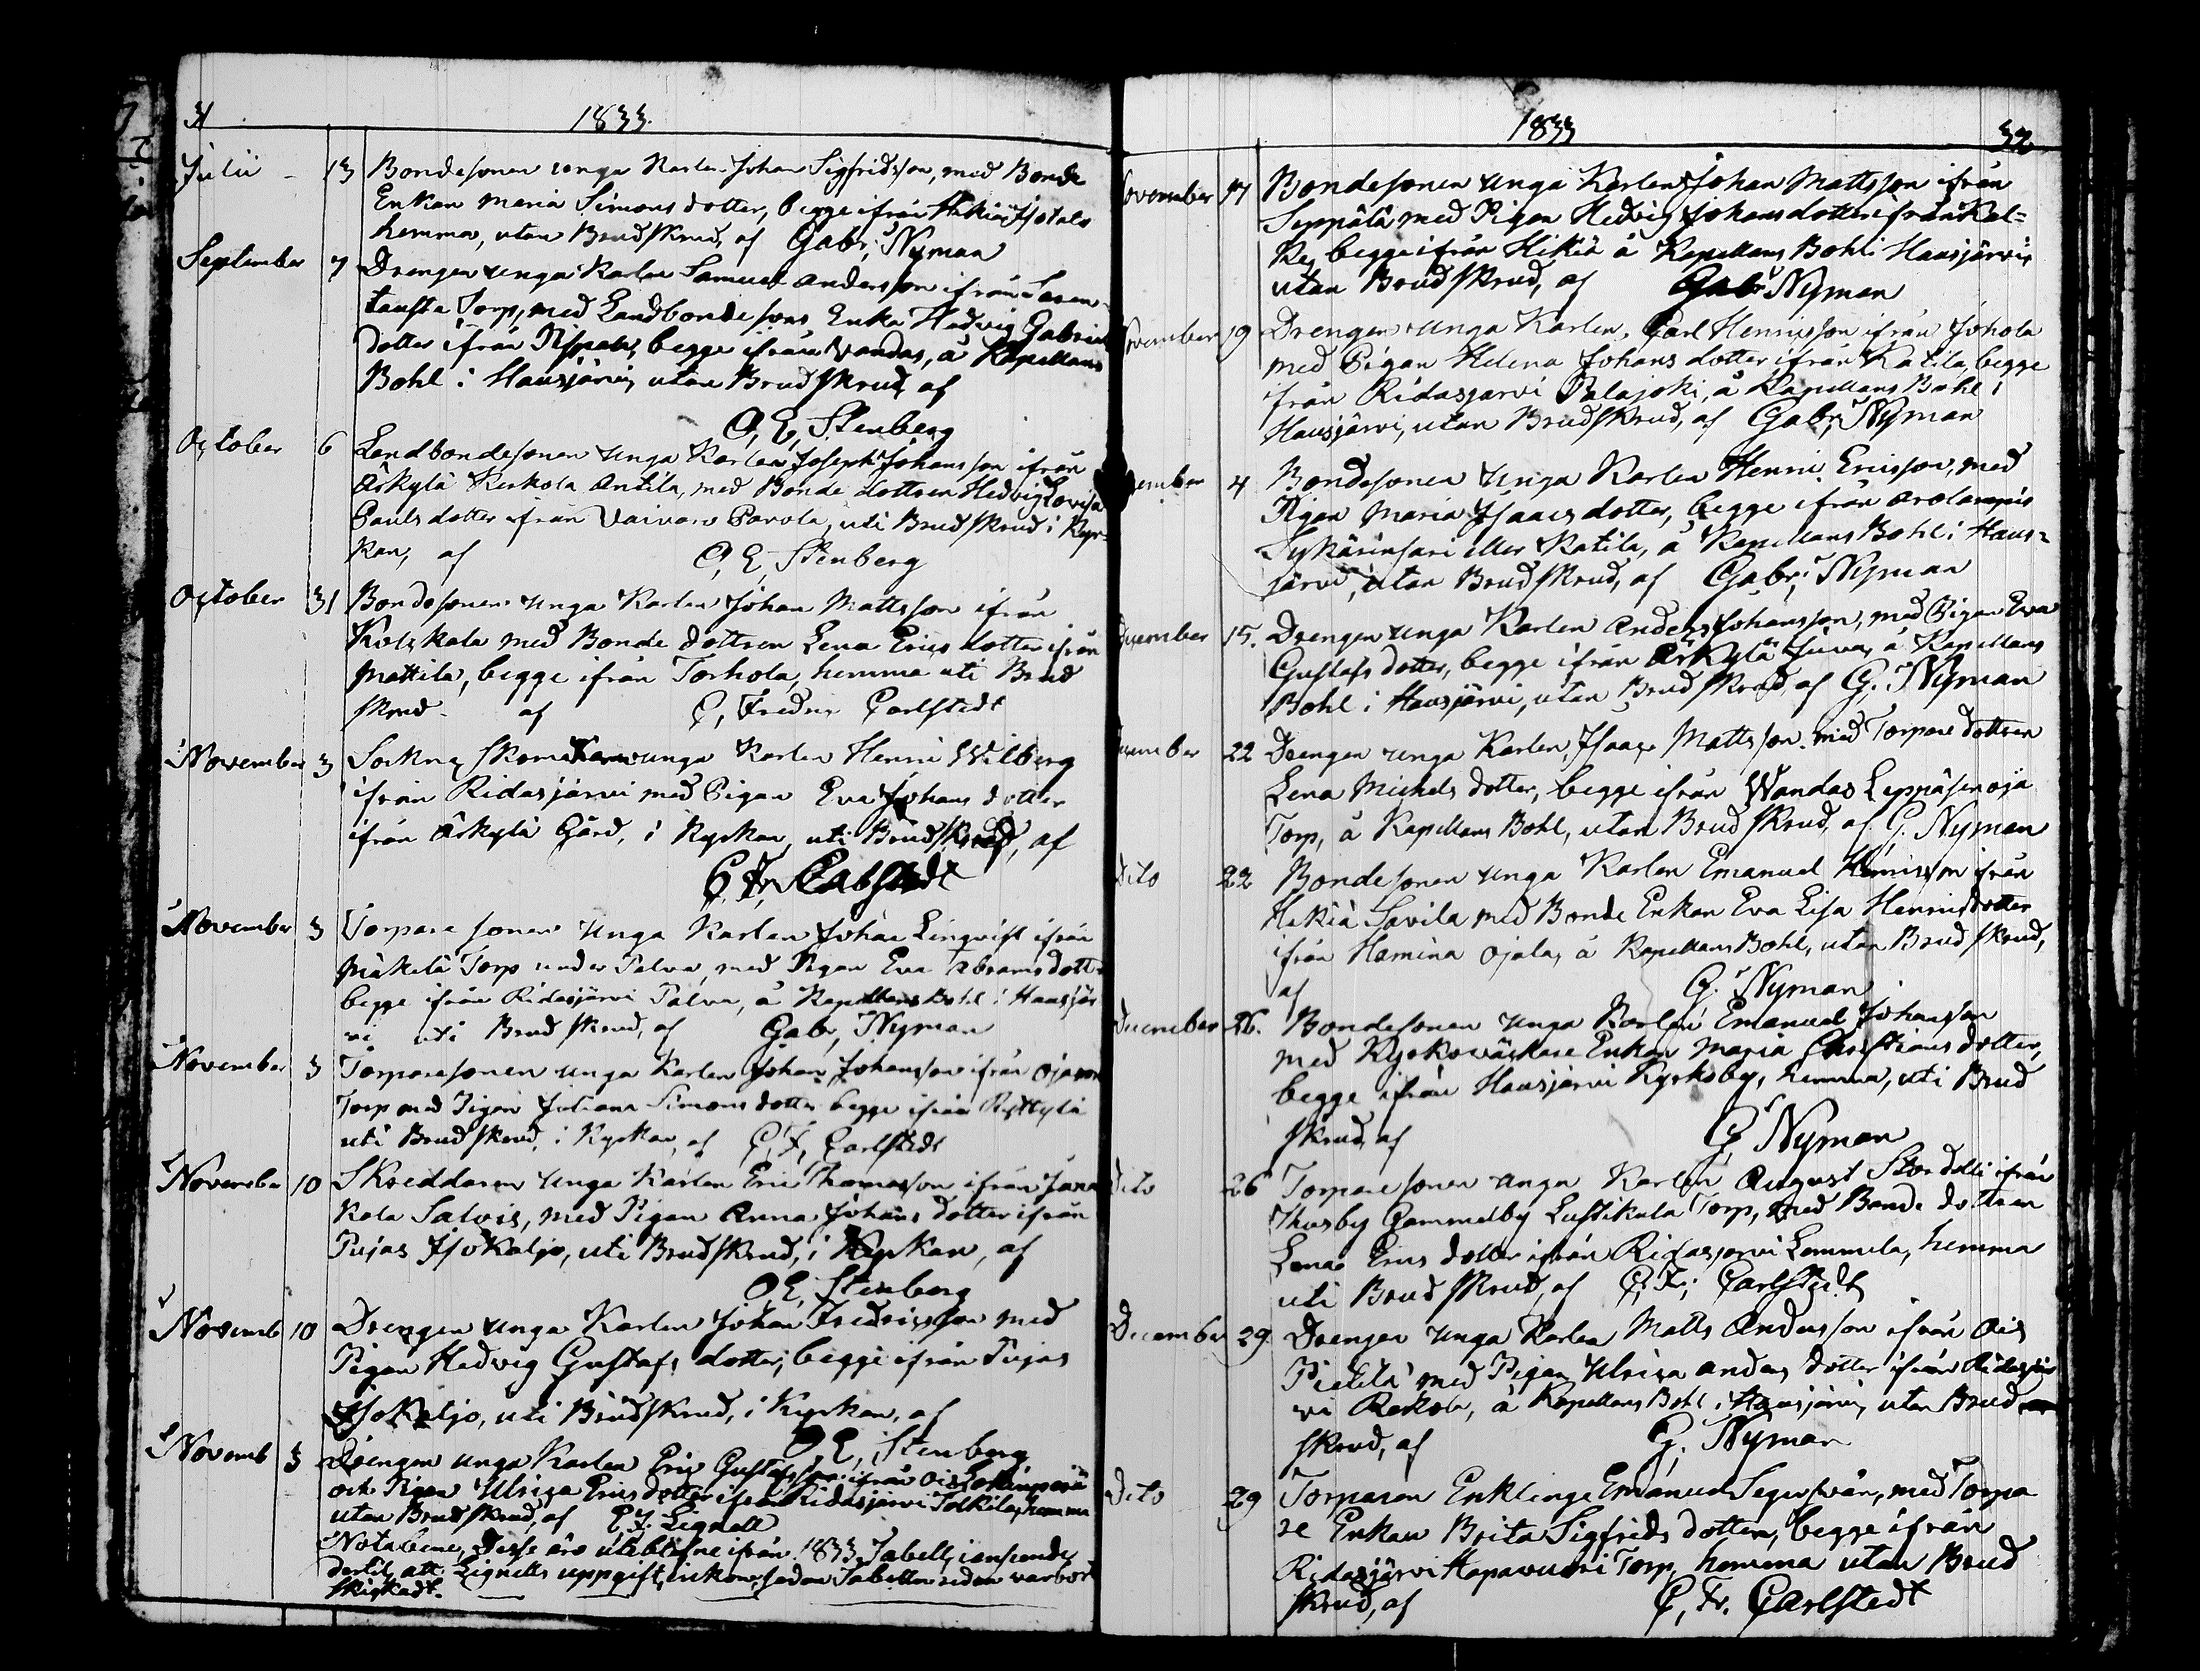 31
1833.
Julii 13 Bondesonen unga Karlen Johan Sigfridsson, med Bonde
Enkan Maria Simons dotter, begge ifrån Hikiä Isotalo
hemma, utan Brudskrud, af Gabr: Nyman
September 7 Drengen unga Karlen Samuel Andersson ifrån
Torp, med Landbondesons Enka Hedvig Gabriels
dotter ifrån begge ifrån Vandas, å Kapellans
Bohl i Hausjärvi, utan Brudskrud, af
O, E, Stenberg
October 6 Landbondesonen unga Karlen Joseph Johansson ifrån
Äskylä Keskola Antila, med Bonde dottren Hedvig Lovisa
Pauls dotter ifrån Vaivaro Pavola, uti Brudskrud i Kyr-
kan, af O, E, Stenberg
October 31 Bondesonen unga Karlen Johan Mattsson ifrån
med Bonde dottren Lena Erics dotter ifrån
Mattila, begge ifrån Torhola, hemma uti Brud
skrud. af C, Fredric Carlstedt
November 3 Sockne Skomakaren unga Karlen Henric Wilberg
ifrån Ridasjärvi med Pigan Eva Johans dotter
ifrån Äskylä Gård, i Kyrkan, uti Brudskrud, af
C. Fr. Carlstedt
November 3 Torpare sonen unga Karlen Johan Linqvist ifrån
Mäkelä Torp under Palva, med Pigan Eva Abrams dotter
begge ifrån Ridasjärvi Palva, å Kapellans Bohl i Hausjär
vi uti Brudskrud, af Gabr, Nyman
November 3 Torparesonen unga Karlen Johan Johansson ifrån
Torp med Pigan Juliana Simons dotter begge ifrån Ryttylä
uti Brudskrud, i Kyrkan, af C, F, Carlstedt
November 10 Skreddaren unga Karlen Eric Thomasson ifrån Jana
kala Salvis, med Pigan Anna Johans dotter ifrån
Pujas Isokaljo, uti Brudskrud, i Kyrkan, af
O, E, Stenberg
Novemb 10 Drengen unga Karlen Johan Fredricsson med
Pigan Hedvig Gustafs dotter, begge ifrån Pujas
Isokaljo, uti Brudskrud, i Kyrkan, af
O, E, Stenberg
Novemb 3 Drengen unga Karlen Eric Gustafsson ifrån Ois
och Pigan Ulrica Erics dotter ifrån Ridasjärvi Tolkila, hemma
utan Brudskrud, af C, F. Lignell
Nota bene, Desse äro uteblefne ifrån 1833 Tabell, i anseende
dertil, att Lignells uppgift, inkom, sedan Tabellen redan var bort
skickadt.
1833
32
November 17 Bondesonen unga Karlen Johan Mattsson ifrån
Seppälä med Pigan Hedvig Johans dotter ifrån Kal-
ke, begge ifrån Hikiä å Kapellans Bohl i Hausjärvi
utan Brudskrud, af Gabr Nyman
November 19 Drengen unga Karlen, Carl Henricsson ifrån Johola
med Pigan Helena Johans dotter ifrån Katila, begge
ifrån Ridasjarvi Palajoki, å Kapellans Bohl i
Hausjärvi, utan Brudskrud, af Gabr: Nyman
ember 4 Bondesonen unga Karlen Henric Ericsson, med
Pigan Maria Isaacs dotter, begge ifrån Arolampis
Sykärinsari eller Katila, å Kapellans Bohl i Haus-
järvi, utan Brudskrud, af Gabr: Nyman
December 15. Drengen unga Karlen Anders Johansson, med Pigan Eva
Gustafs dotter, begge ifrån Äskylä å Kapellans
Bohl i Hausjärvi, utan Brudskrud, af G. Nyman
December 22 Drengen unga Karlen, Isaac Mattsson med Torpare dottren
Lena Michels dotter, begge ifrån Wandas Leppäsenoja
Torp, å Kapellans Bohl, utan Brudskrud, af G. Nyman
Dito 22 Bondesonen unga Karlen Emanuel Henricsson ifrån
Hikiä Savila med Bonde Enkan Eva Lisa Henrics dotter
ifrån Hamina Ojala, å Kapellans Bohl, utan Brudskrud,
af G. Nyman
December 26. Bondesonen unga Karlen Emanuel Johansson
med Kyrkoväktare Enkan Maria Christians dotter,
begge ifrån Hausjärvi Kyrkoby, hemma, uti Brud
skrud, af G. Nyman
Dito 26 Torpare sonen unga Karlen August ifrån
Thusby Gammelby Lustikula Torp, med Bonde dottren
Lena Erics dotter ifrån Ridasjarvi Lemmela, hemma
uti Brudskrud, af C, F; Carlstedt
December 29. Drengen unga Karlen Matts Andersson ifrån Ois
Pietilä med Pigan Ulrica Anders dotter ifrån Ridasjär
vi Rekola, å Kapellans Bohl i Hausjärvi, utan Brud
skrud, af G. Nyman
Dito 29 Torparen Enklinge Emanuel Segersvän, med Torpa
re Enkan Brita Sigfrids dotter, begge ifrån
Ridasjärvi Hapavuori Torp, hemma utan Brud
skrud, af C, Fr. Carlstedt